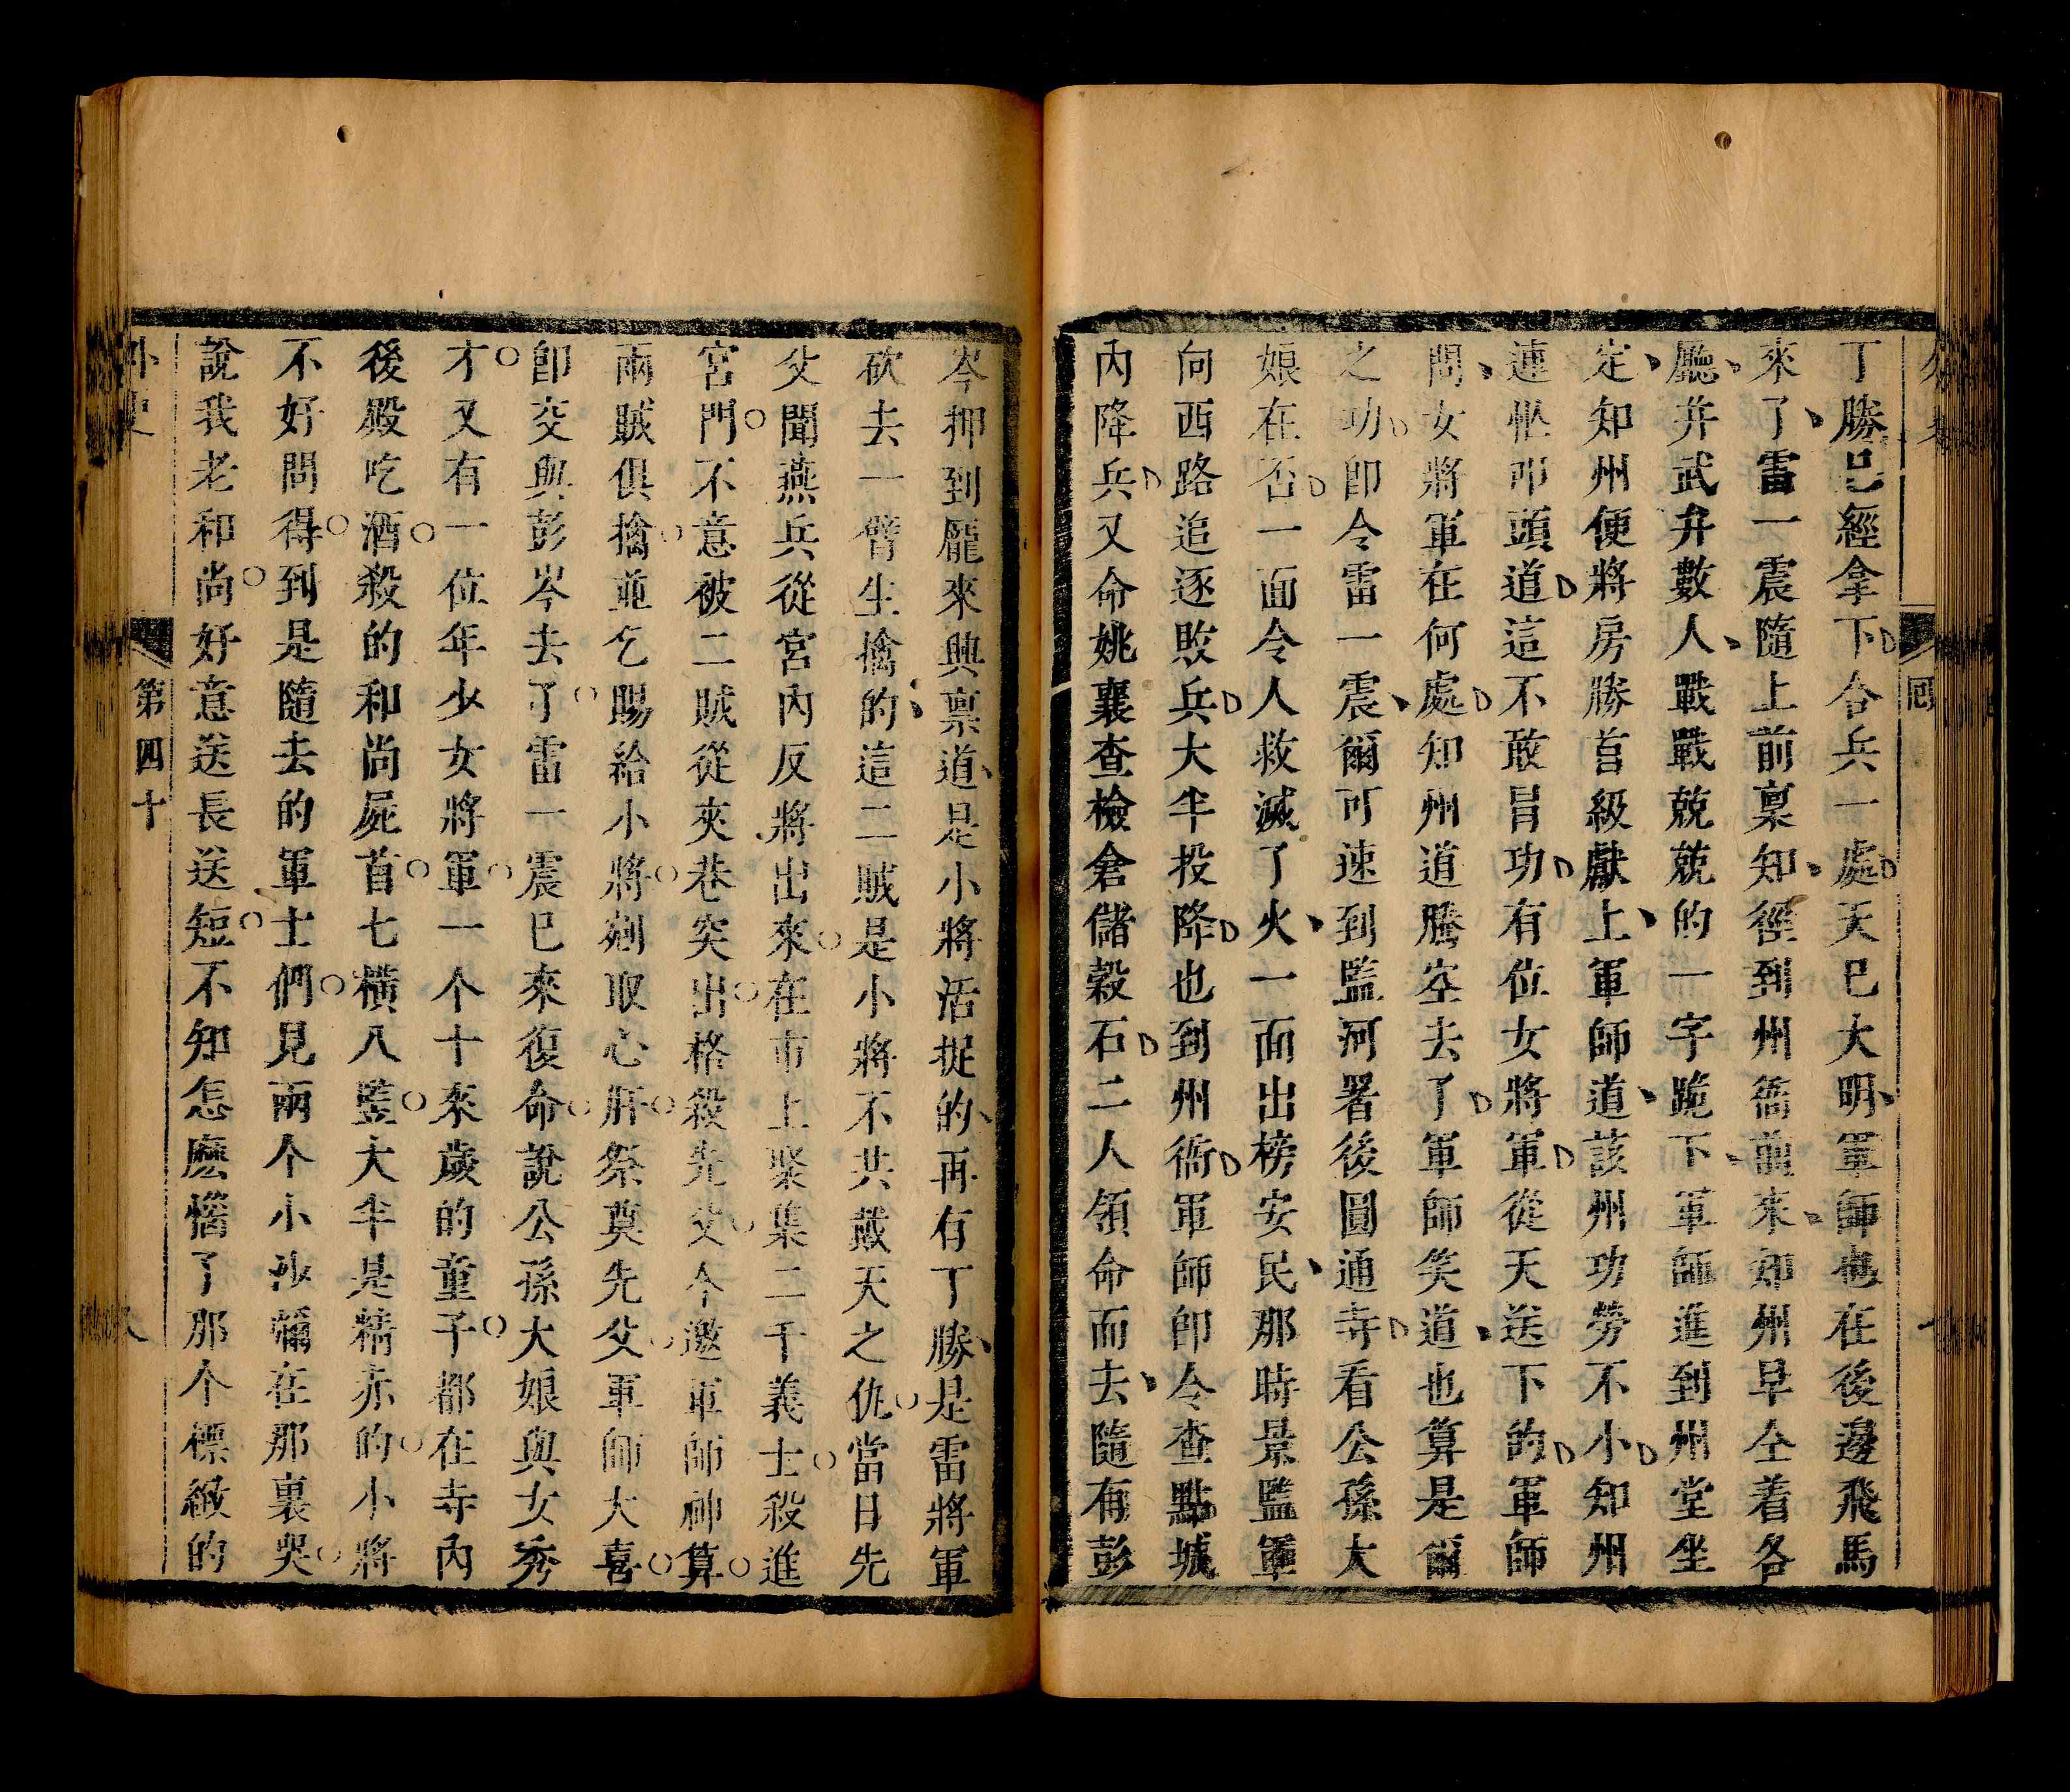 丁勝已經拿下合兵一處天已大明軍師也在後邊飛馬
來了雷一震隨上前稟知徑到州衙前來知州早仝着各
廳并武弁數人戰戰兢兢的一字跪下軍師進到州堂坐
定知州便將房勝首級獻上軍師道該州功勞不小知州
連忙叩頭道這不敢冒功有位女將軍從天送下的軍師
問女將軍在何處知州道騰空去了軍師笑道也算是爾
之功即令雷一震爾可速到監河署後圓通寺看公孫大
娘在否一面令人救滅了火一面出榜安民那時景監軍
向西路追逐敗兵大半投降也到州衙軍師即令查點城
內降兵又命姚襄查檢倉儲穀石二人領命而去隨有彭
岑押到龐來興禀道是小將活捉的再有丁勝是雷將軍
砍去一臂生擒的這二賊是小將不共戴天之仇當日先
父聞燕兵從宮內反將出來在市上聚集二千義士殺進
宮門不意被二賊從夾巷突出格殺先父今邀軍師神算
兩賊俱擒並乞賜給小將剜取心肝祭奠先父軍師大喜
卽交與彭岑去了雷一震已來復命說公孫大娘與女秀
才又有一位年少女將軍一个十來歲的童子都在寺內
後殿吃酒殺的和尚屍首七橫八竪大半是精赤的小將
不好問得到是隨去的軍士們見兩个小沙彌在那裏哭
說我老和尚好意送長送短不知怎麽惱了那个標緻的
外史
第四十